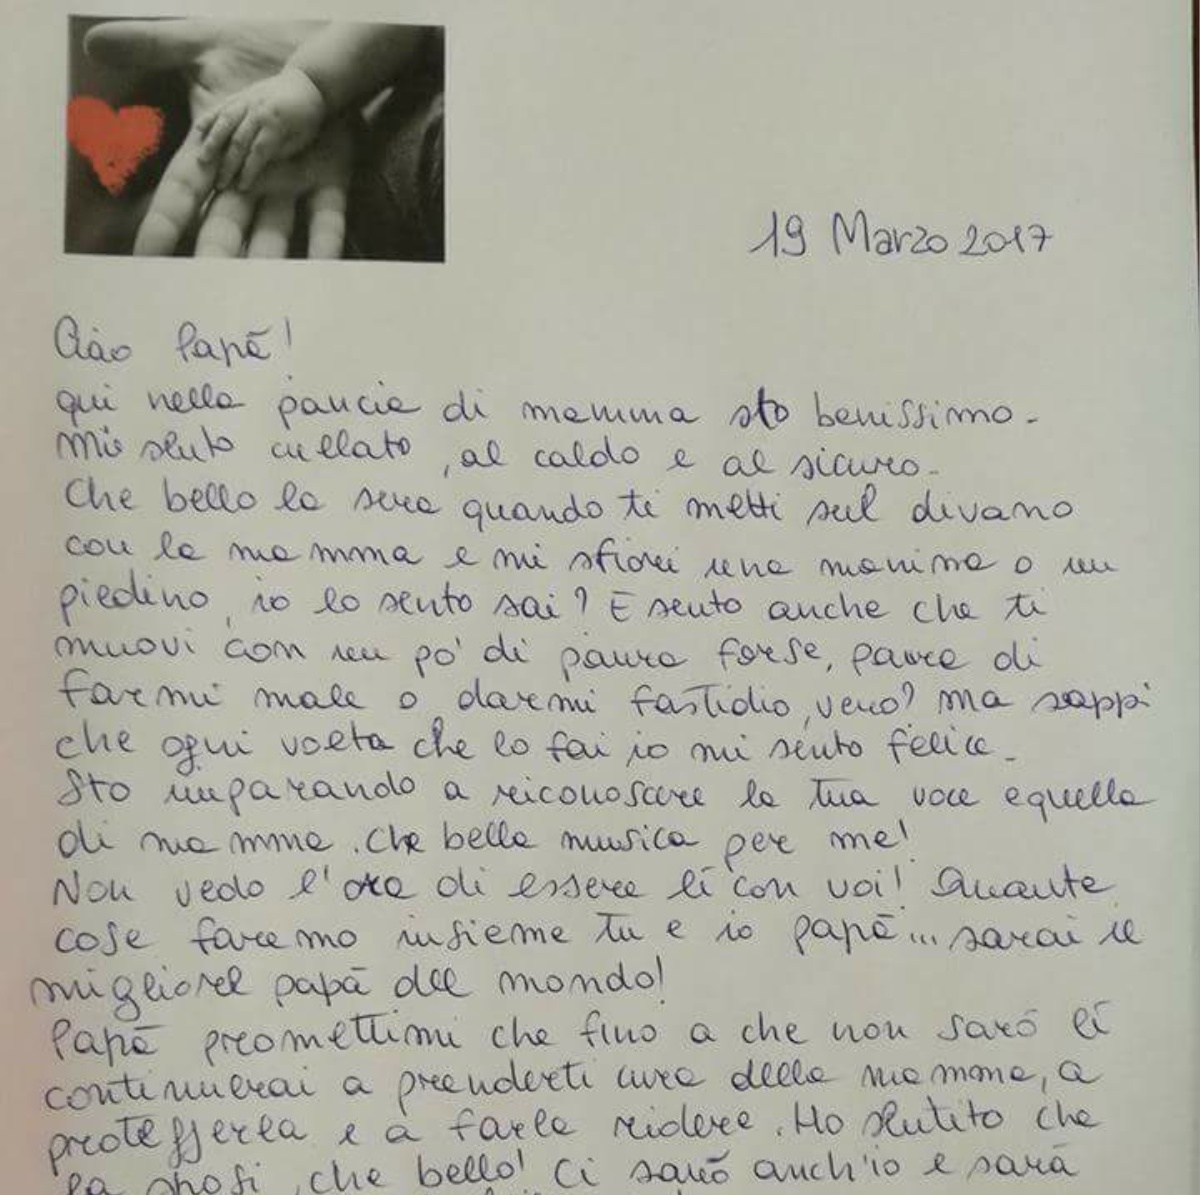 19 Marzo 2017
Ciao Papà!
qui nella pancia di mamma sto benissimo.
Mi sento cullato, al caldo e al sicuro.
Che bello la sera quando ti metti sul divano
con la mamma e mi sfiori una manina o un
piedino, io lo sento sai? E sento anche che ti
muovi con un po' di paura forse, paura di
farmi male o darmi fastidio, vero? Ma sappi
che ogni volta che lo fai io mi sento felice.
Sto imparando a riconoscere la tua voce e quella
di mamma. Che bella musica per me!
Non vedo l'ora di essere lì con voi! Quante
cose faremo insieme tu e io papà... sarai il
migliorel papà del mondo!
Papà promettimi che fino a che non sarò lì
continuerai a prenderti cura della mamma, a
proteggerla e a farla ridere. Ho sentito che
la sposi, che bello! Ci sarò anch'io e sarà